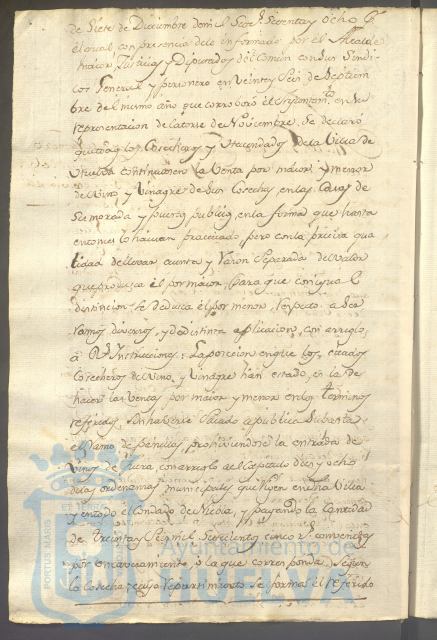 de Siete de Diciembre de mil Setecs. Setenta y ocho
el qual, con presencia de lo informado por el Alcalde
maior, Justicias y Diputados del Comun con sus Sindi
cos General y personero en Veinte y Seis de Septiem
bre del mismo año que corroboró el Ayuntamto. en su
representacion de Catorse de Noviembre, Se declaró
que todos los Cosecheros y Vecindados de la Villa de
Huelva continuasen la Venta por maior y menor
de Vino, y Vinagre de sus Cosechas en las Casas de
Su morada y puesto publico, en la forma que hasta
entonces lo havian practicado, pero con la precisa qua
lidad de llevar cuenta y Razon Separada del valor
que produzca el por maior. Para que con igual
distincion se deduzca el por menor, respecto a Ser
ramos diversos, y de distinta aplicacion, con arreglo
a Rs. Instrucciones: La posecion en que los citados
Cosecheros de Vino, y Vinagre han estado, en la de
hacer las Ventas por maior y menor en los terminos
referidos, sin haverse Sacado a publica Subasta
el Ramo de penillas, prohiviendose la entrada de
Vinos de fuera, con arreglo al Capitulo diez y ocho
de las ordenanzas municipales que rijen en dha Villa
y en todo el Condado de Niebla, y pagando la Cantidad
de Treinta y Seis mil Setecientos cinco rs. convenidos
por encavezamiento, o la que corresponda, Segun
la Cosecha, cuyo repartimiento se forma el referido
PORTUS MARIS
Ayuntamiento de
HUELVA